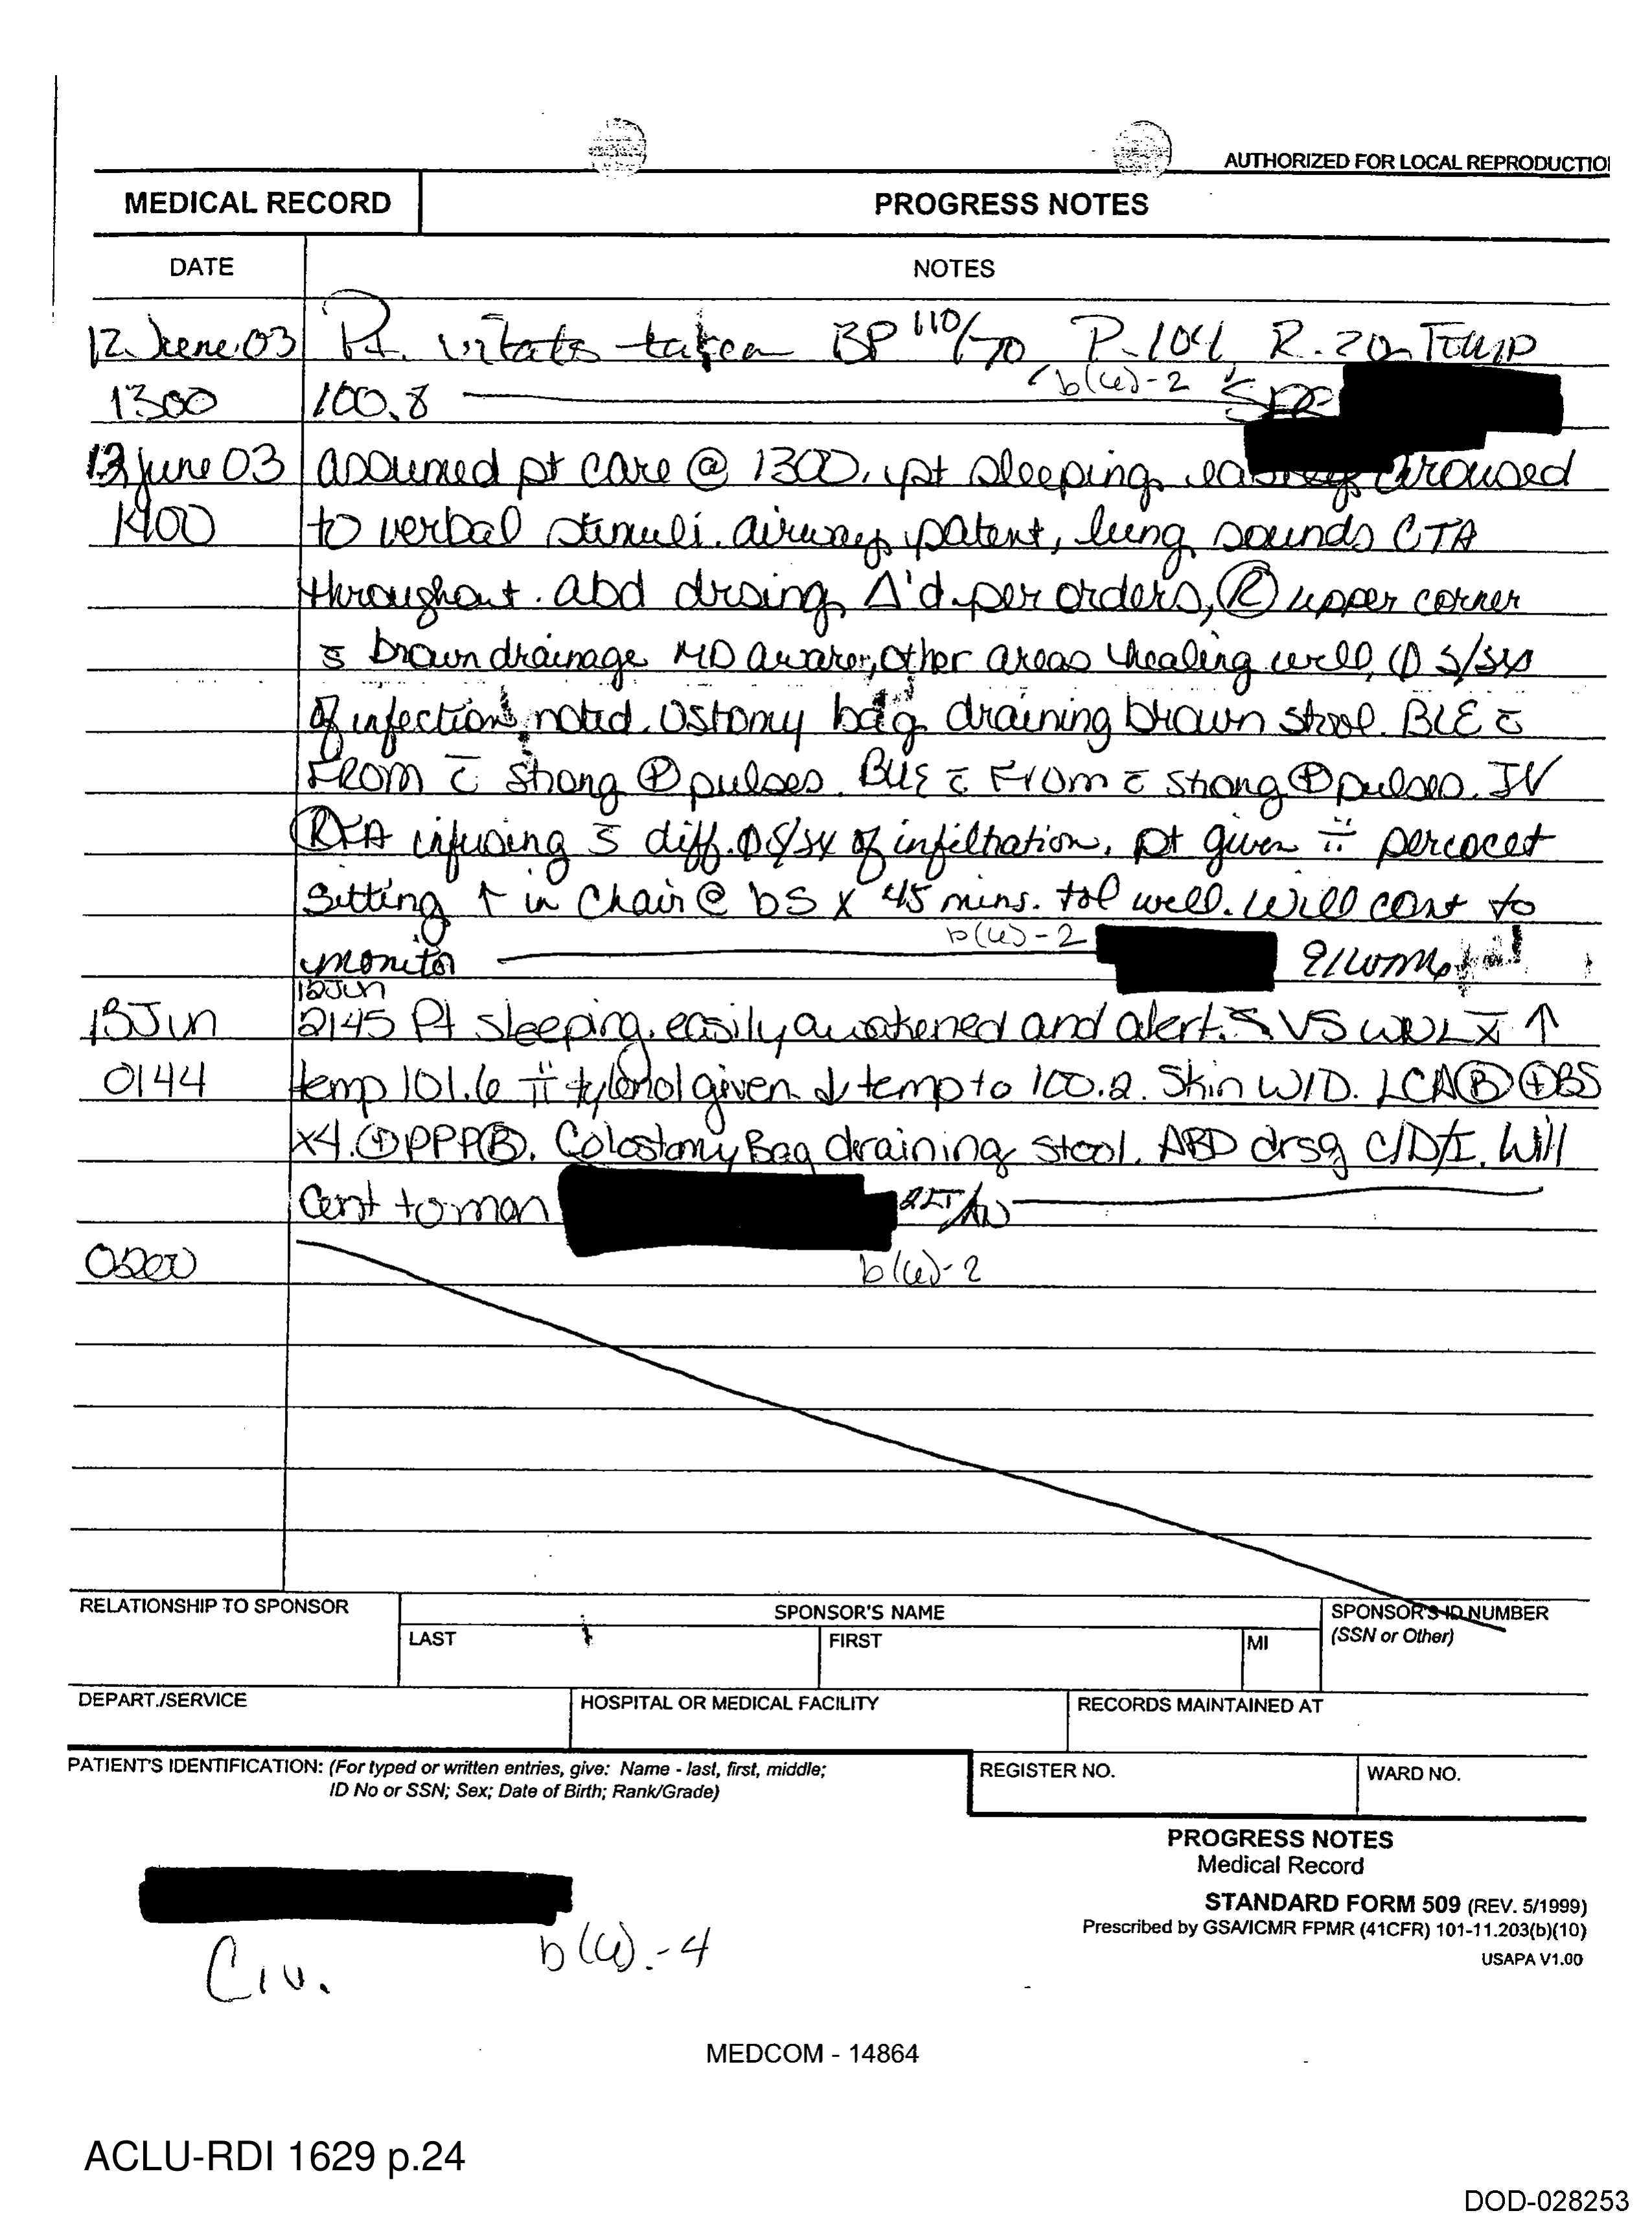 AUTHORIZED FOR LOCAL REPRODUCTIO
MEDICAL RECORD PROGRESS NOTES
DATE NOTES
12 June 03 Pt. vitals taken BP 110/70 P-104 R-20 Temp
1300 100.8 b(6)-2
12 June 03 assumed pt care @ 1300. pt sleeping, easily aroused
1400 to verbal stimuli. airway patent, lung sounds CTA
throughout. abd drsing Δ'd per orders, Ⓡ upper corner
s̄ brown drainage MD aware, other areas healing well, Ø s/sxs
of infection noted. Ostomy bag draining brown stool. BLE c̄
FROM c̄ strong ⊕ pulses. BUE c̄ FROM c̄ strong ⊕ pulses. IV
Ⓡ FA infusing s̄ diff. Ø s/sx of infiltration. pt given ii percocet
sitting ↑ in chair @ bs x 45 mins. tol well. Will cont to
monitor b(6)-2
12 Jun
13 Jun 2145 Pt sleeping, easily awakened and alert. VS WNL x̄ ↑
0144 temp 101.6 ii tylenol given ↓ temp to 100.2. Skin W/D. LCA Ⓑ ⊕ BS
x4. ⊕ PPP Ⓑ. Colostomy Bag draining stool. ABD drsg C/D/I. Will
cont to mon 2LT/AN
b(6)-2
RELATIONSHIP TO SPONSOR SPONSOR'S NAME SPONSOR'S ID NUMBER
(SSN or Other)
LAST FIRST MI
DEPART./SERVICE HOSPITAL OR MEDICAL FACILITY RECORDS MAINTAINED AT
PATIENT'S IDENTIFICATION: (For typed or written entries, give: Name - last, first, middle;
ID No or SSN; Sex; Date of Birth; Rank/Grade)
REGISTER NO. WARD NO.
PROGRESS NOTES
Medical Record
STANDARD FORM 509 (REV. 5/1999)
Prescribed by GSA/ICMR FPMR (41CFR) 101-11.203(b)(10)
USAPA V1.00
b(6)-4
Civ.
MEDCOM - 14864
ACLU-RDI 1629 p.24
DOD-028253